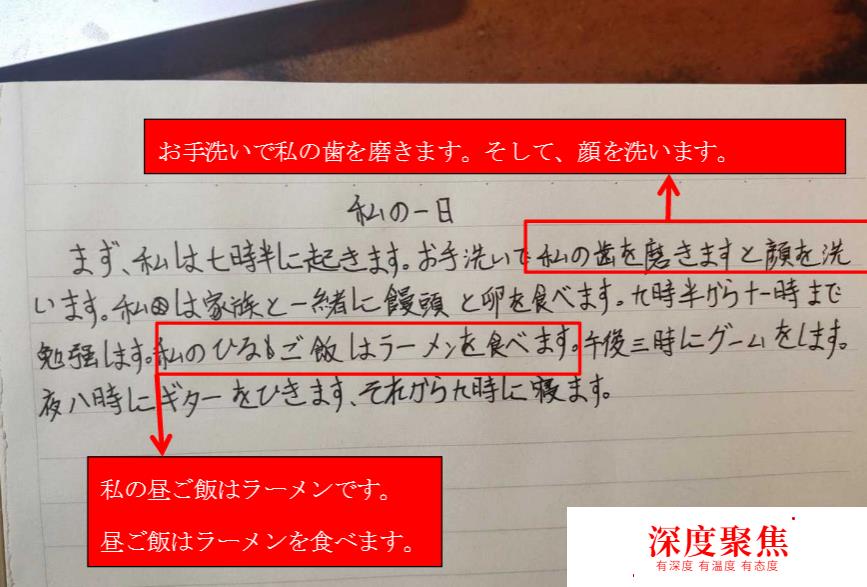 お手洗いで私の歯を磨きます。そして、顔を洗います。
私の一日
まず、私は七時半に起きます。お手洗いで私の歯を磨きますと顔を洗
います。私は家族と一緒に饅頭と卵を食べます。九時半から十一時まで
勉強します。私のひるもご飯はラーメンを食べます。午後三時にゲームをします。
夜八時にギターをひきます、それから九時に寝ます。
私の昼ご飯はラーメンです。
昼ご飯はラーメンを食べます。
深度聚焦
有深度 有温度 有态度